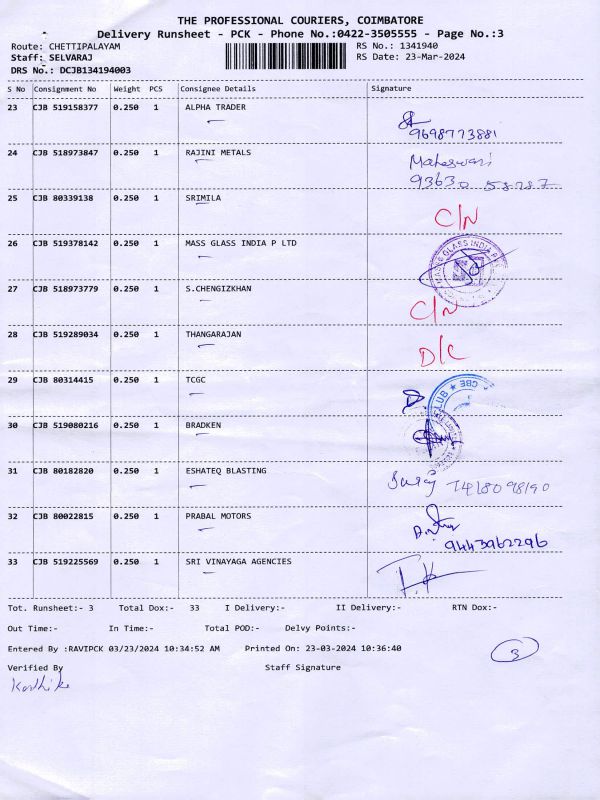 THE PROFESSIONAL COURIERS, COIMBATORE
Delivery Runsheet - PCK - Phone No.:0422-3505555 - Page No.:3
Route: CHETTIPALAYAM RS No.: 1341940
Staff: SELVARAJ RS Date: 23-Mar-2024
DRS No.: DCJB134194003
S No Consignment No Weight PCS Consignee Details Signature
23 CJB 519158377 0.250 1 ALPHA TRADER
9698773881
24 CJB 518973847 0.250 1 RAJINI METALS Maheswari
93630 58287
25 CJB 80339138 0.250 1 SRIMILA
C/N
26 CJB 519378142 0.250 1 MASS GLASS INDIA P LTD
27 CJB 518973779 0.250 1 S.CHENGIZKHAN
C/N
28 CJB 519289034 0.250 1 THANGARAJAN
D/C
29 CJB 80314415 0.250 1 TCGC
CBE
30 CJB 519080216 0.250 1 BRADKEN
31 CJB 80182820 0.250 1 ESHATEQ BLASTING
32 CJB 80022815 0.250 1 PRABAL MOTORS
9443962296
33 CJB 519225569 0.250 1 SRI VINAYAGA AGENCIES
Tot. Runsheet:- 3 Total Dox:- 33 I Delivery:- II Delivery:- RTN Dox:-
Out Time:- In Time:- Total POD:- Delvy Points:-
Entered By :RAVIPCK 03/23/2024 10:34:52 AM Printed On: 23-03-2024 10:36:40
3
Verified By Staff Signature
Karthik